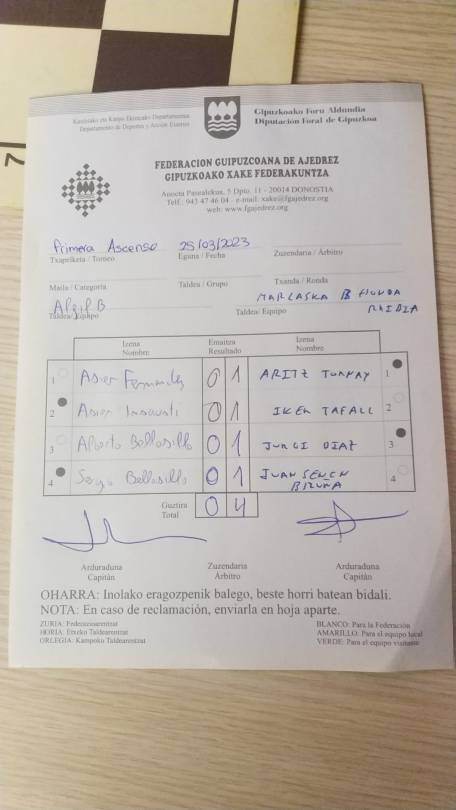 7
Kanpoko eta Kirol Ekintzako Departamentua
Departamento de Deportes y Acción Exterior
Gipuzkoako Foru Aldundia
Diputación Foral de Gipuzkoa
FEDERACION GUIPUZCOANA DE AJEDREZ
GIPUZKOAKO XAKE FEDERAKUNTZA
Anoeta Pasealekua, 5 Dpto. 11 - 20014 DONOSTIA
Telf.: 943 47 46 04 - e-mail: xake@fgajedrez.org
web: www.fgajedrez.org
Primera Ascenso 25/03/2023
Txapelketa / Torneo Eguna / Fecha Zuzendaria / Árbitro
Maila / Categoría Taldea / Grupo Txanda / Ronda
B MARLASKA B HONDA
Taldea/ Equipo Taldea/ Equipo
Izena Nombre Emaitza Resultado Izena Nombre
1 Asier Fernandez 0 1 ARITZ 1
2 Asier 0 1 IKER TAFALL 2
3 Alberto Bellosillo 0 1 JURGI DIAZ 3
4 Sergio Bellosillo 0 1 JUAN 4
Guztira Total 0 4
Arduraduna Zuzendaria Arduraduna
Capitán Árbitro Capitán
OHARRA: Inolako eragozpenik balego, beste horri batean bidali.
NOTA: En caso de reclamación, enviarla en hoja aparte.
ZURIA: Federazioarentzat BLANCO: Para la Federación
HORIA: Etxeko Taldearentzat AMARILLO: Para el equipo local
ORLEGIA: Kanpoko Taldearentzat VERDE: Para el equipo visitante